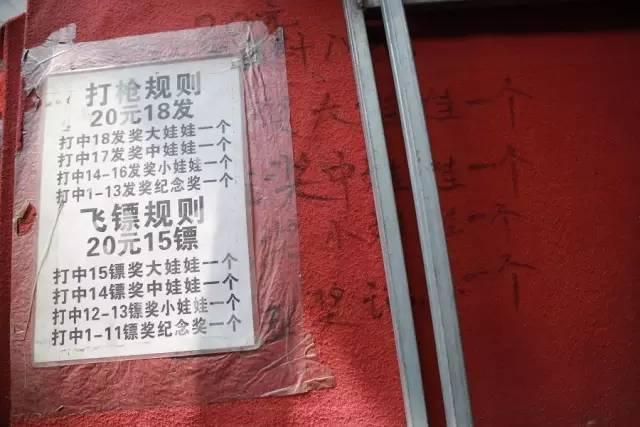 打枪规则
20元18发
打中18发奖大娃娃一个
打中17发奖中娃娃一个
打中14-16发奖小娃娃一个
打中1-13发奖纪念奖一个
飞镖规则
20元15镖
打中15镖奖大娃娃一个
打中14镖奖中娃娃一个
打中12-13镖奖小娃娃一个
打中1-11镖奖纪念奖一个
大 一个
奖中 一个
小 一个
奖 一个